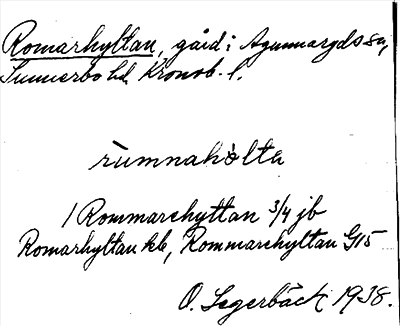 Romarhyttan, gård i Agunnaryds sn,
Sunnerbo hd. Kronob. l.
rùmnahølta
1 Rommarehyttan 3/4 jb
Romarhyttan kb, Rommarehyttan G15
O. Segerbäck 1938.